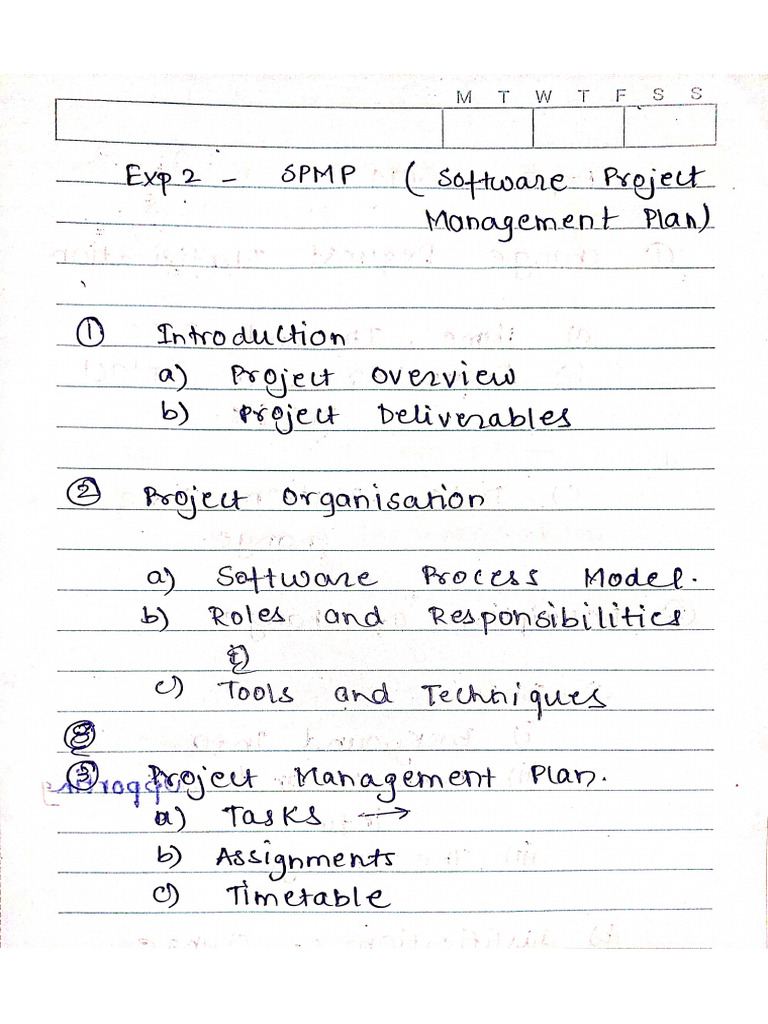 M T W T F S S
Exp 2 - SPMP ( Software Project
Management Plan)
① Introduction
a) Project Overview
b) Project Deliverables
② Project Organisation
a) Software Process Model.
b) Roles and Responsibilities
c) Tools and Techniques
③ Project Management Plan.
a) Tasks →
b) Assignments
c) Timetable